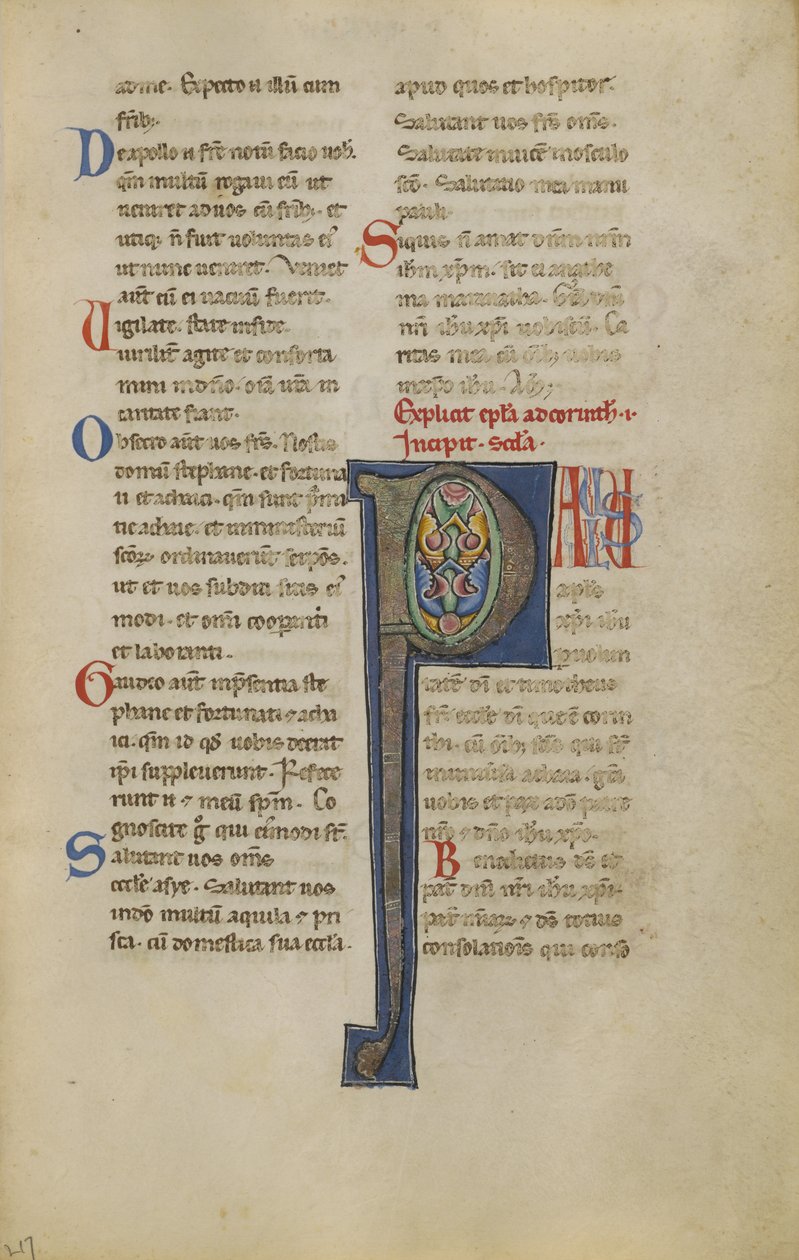 ad me. Expecto n̄ illū cum
fr̄ib;.
De apollo n̄ fr̄e notū facio uob̄.
qm̄ multū rogaui eū ut
ueniret ad uos cū fr̄ib;. et
utiq; n̄ fuit uoluntas ei᾽
ut nunc ueniret. Veniet
aūt cū ei uacuū fuerit.
Uigilate. state in fide.
uirilit̄ agite et conforta
mini in dn̄o. om̄ia ur̄a in
caritate fiant.
Obsecro aūt uos fr̄s. Nostis
domū stephane. et fortuna
ti et achaici. qm̄ sunt p̄imi
tie achaie. et in ministeriū
scōꝝ ordinauerūt se ipōs.
ut et uos subditi sitis ei᾽
modi. et om̄i cooperanti
et laboranti.
Gaudeo aūt in p̄sentia ste
phane et fortunati ⁊ achai
ici. qm̄ id qd̄ uobis deerat
ip̄i suppleuerunt. Refece
runt n̄ ⁊ meū sp̄m. Co
gnoscite g̊ qui ei᾽modi st̄.
Salutant uos om̄s
eccl̄e asye. Salutant uos
in dn̄o multū aquila ⁊ pri
sca. cū domestica sua eccl̄a.
apud quos et hospitor.
Salutant uos fr̄s om̄s.
Salutate inuicē in osculo
scō. Salutatio mea manu
pauli.
Siquis n̄ amat dn̄m nr̄m
ih̄m xp̄m. sit ei anathe
ma maranatha. Gr̄a dn̄i
nr̄i ih̄u xp̄i uobiscū. Ca
ritas mea cū om̄ib; uobis
in xp̄o ih̄u. Am̄;
Explicit ep̄la ad corinth̄.i.
Incipit. sc̄da.
PAULUS
apl̄s
xp̄i ih̄u
p uolun
tatē dī et timotheus
fr̄. eccl̄e dī que ē corin
thi. cū om̄ib; scīs qui st̄
in uniuersa achaia. gr̄a
uobis et pax a dō patre
nr̄o ⁊ dn̄o ih̄u xp̄o.
Benedictus ds̄ et
pat̄ dn̄i nr̄i ih̄u xp̄i.
pat̄ mīaꝝ ⁊ ds̄ totius
consolationis qui conso
217